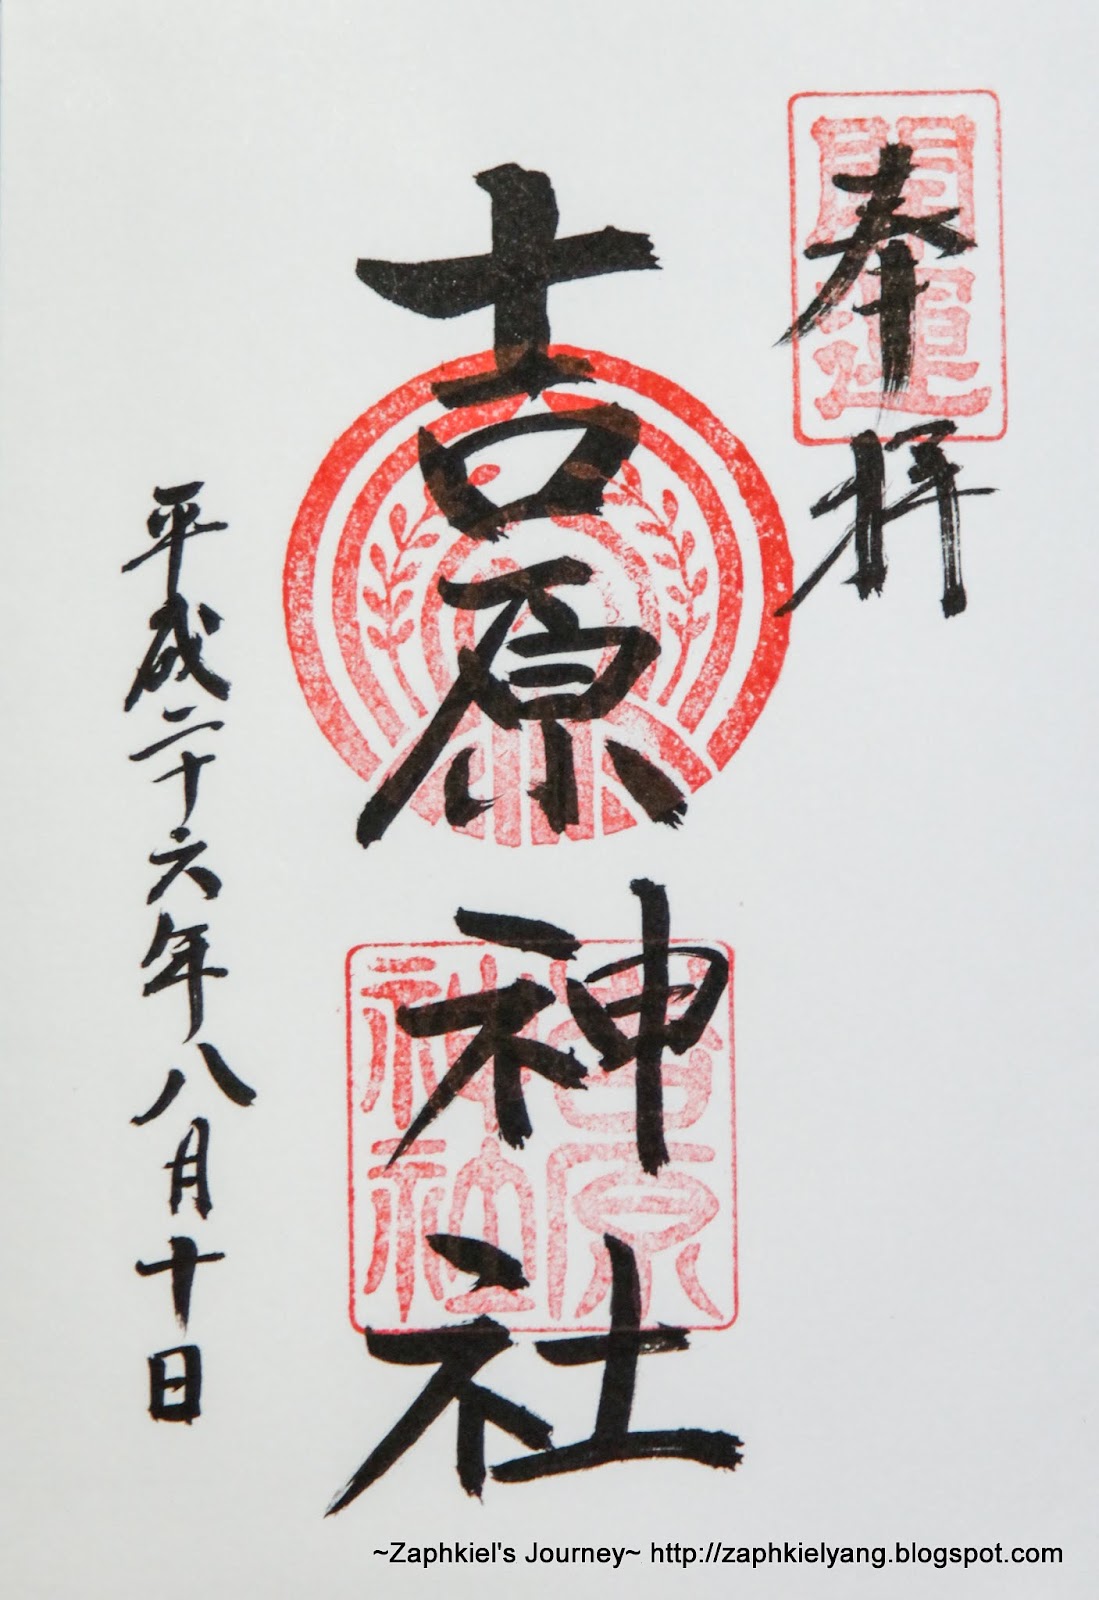 開運
奉拝
吉原神社
吉原神社
平成二十六年八月十日
~Zaphkiel's Journey~ http://zaphkielyang.blogspot.com